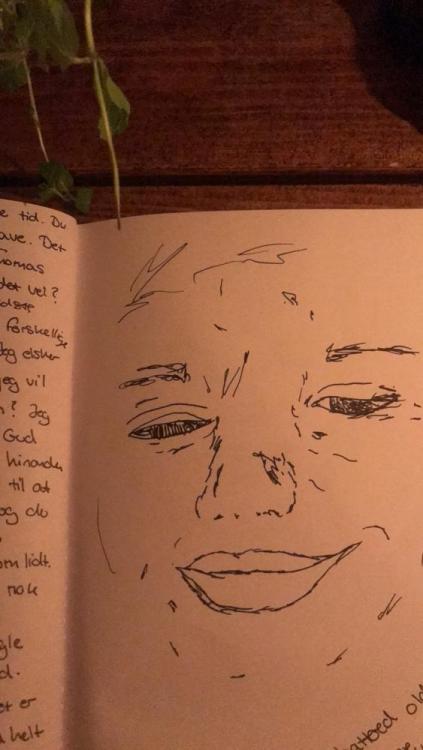 e tid. Du
ave. Det
homas
det vel?
forskellige
Jeg elsker
jeg vil
? Jeg
Gud
hinanden
til at
og du
om lidt.
nok
gle
d.
et er
d helt
attoed old